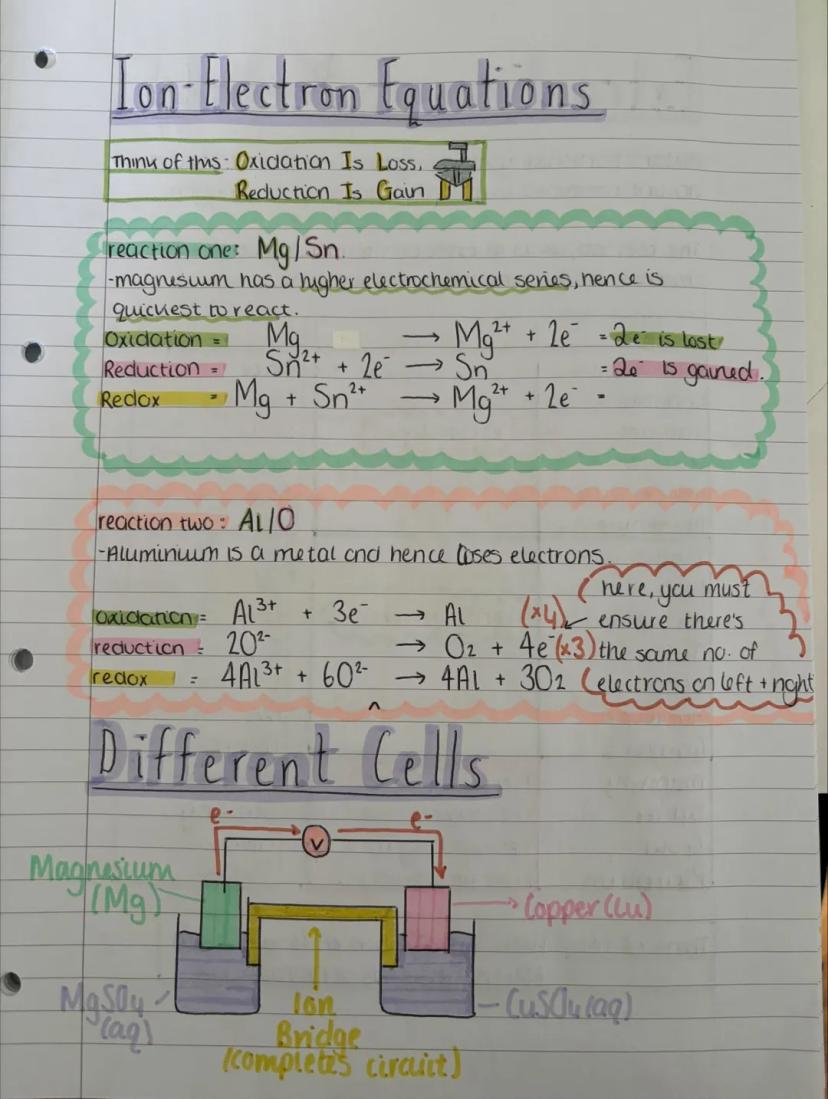 Ion-Electron Equations
Think of this: Oxidation Is Loss,
Reduction Is Gain
reaction one: Mg/Sn
-magnesium has a higher electrochemical series, hence is
quickest to react.
Oxidation = Mg → Mg²⁺ + 2e⁻ = 2e⁻ is lost
Reduction = Sn²⁺ + 2e⁻ → Sn = 2e⁻ is gained.
Redox = Mg + Sn²⁺ → Mg²⁺ + 2e⁻ =
reaction two: Al/O
-Aluminium is a metal and hence loses electrons.
here, you must
oxidation = Al³⁺ + 3e⁻ → Al (x4) ensure there's
reduction = 2O²⁻ → O₂ + 4e⁻ (x3) the same no. of
redox = 4Al³⁺ + 6O²⁻ → 4Al + 3O₂ (electrons on left + right
^
Different Cells
e- e-
V
Magnesium
(Mg)
Copper (Cu)
MgSO₄
(aq)
CuSO₄ (aq)
Ion
Bridge
(completes circuit)